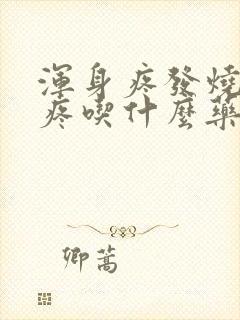 渾身疼發燒
疼喫什麼藥
卿蒿